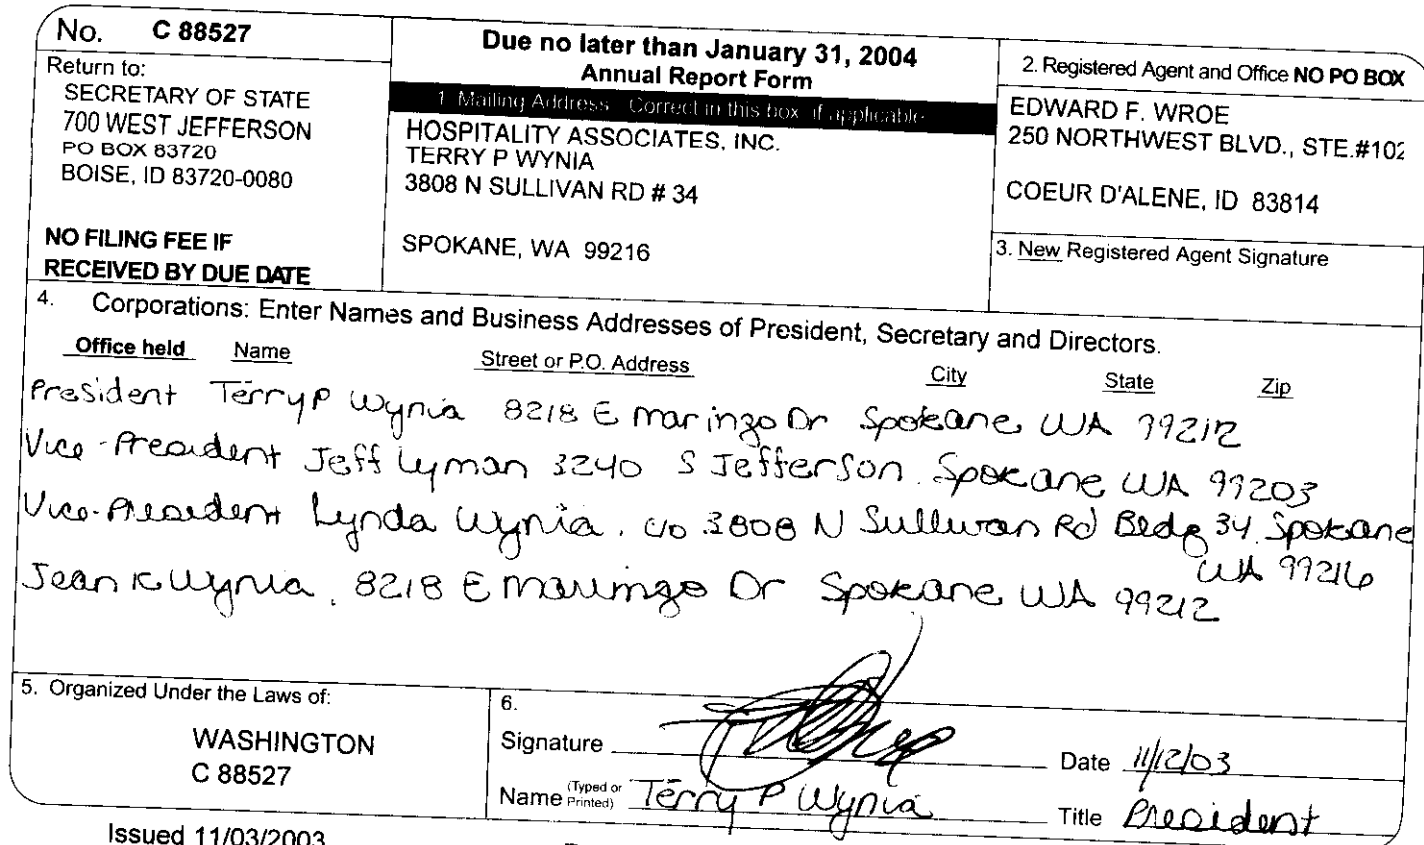 No. C 88527
Return to:
SECRETARY OF STATE
700 WEST JEFFERSON
PO BOX 83720
BOISE, ID 83720-0080
NO FILING FEE IF
RECEIVED BY DUE DATE
Due no later than January 31, 2004
Annual Report Form
1. Mailing Address Correct in this box if applicable
HOSPITALITY ASSOCIATES, INC.
TERRY P WYNIA
3808 N SULLIVAN RD # 34
SPOKANE, WA 99216
2. Registered Agent and Office NO PO BOX
EDWARD F. WROE
250 NORTHWEST BLVD., STE.#102
COEUR D'ALENE, ID 83814
3. New Registered Agent Signature
4. Corporations: Enter Names and Business Addresses of President, Secretary and Directors.
Office held Name Street or P.O. Address City State Zip
President Terry P Wynia 8218 E Maringo Dr Spokane WA 99212
Vice-President Jeff Lyman 3240 S Jefferson. Spokane WA 99203
Vice-President Lynda Wynia. c/o 3808 N Sullivan Rd Bldg 34 Spokane
WA 99216
Jean K Wynia, 8218 E Maringo Dr Spokane WA 99212
5. Organized Under the Laws of:
WASHINGTON
C 88527
6.
Signature Date 11/12/03
Name (Typed or Printed) Terry P Wynia Title President
Issued 11/03/2003